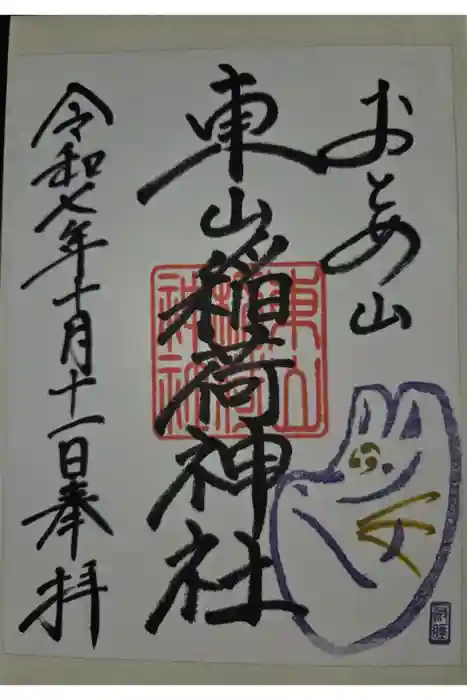 おとめ山
東山稲荷神社
東山稲荷神社
令和七年十月十一日奉拝